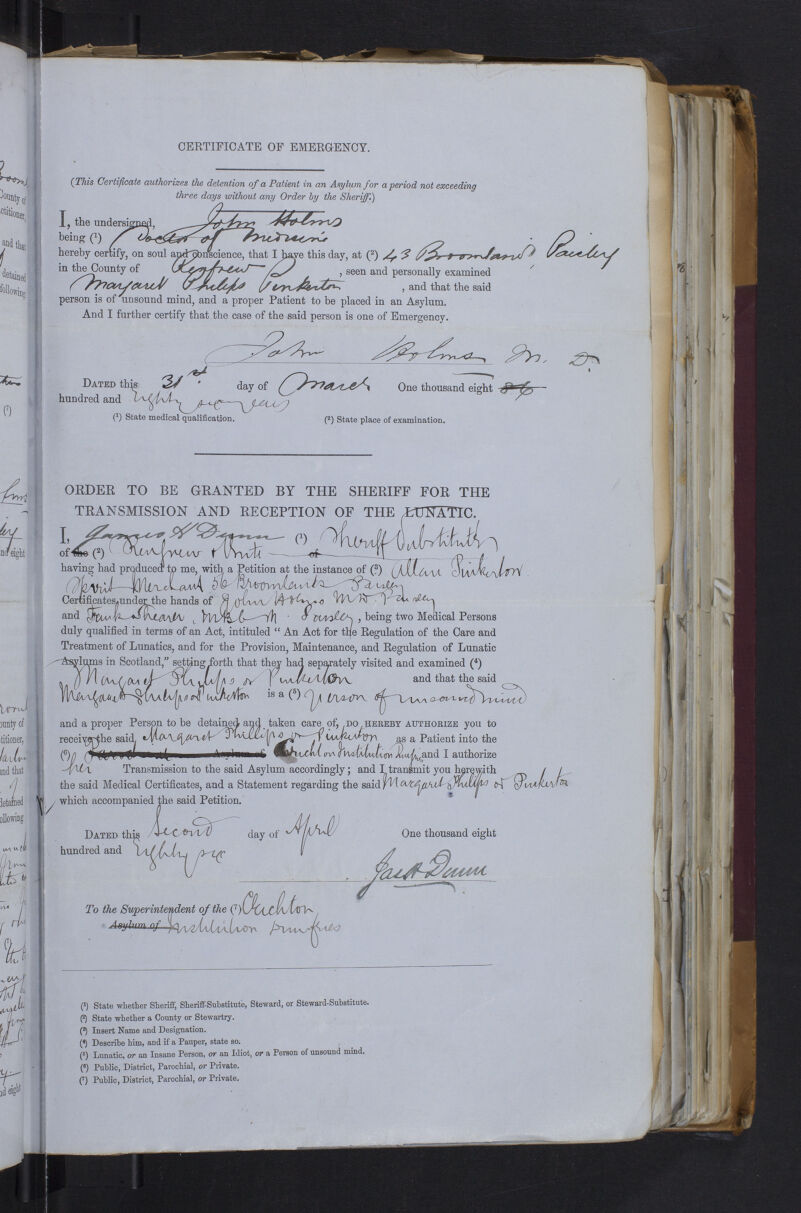 CERTIFICATE OF EMERGENCY.
(This Certificate authorizes the detention of a Patient in an Asylum for a period not exceeding
three days without any Order by the Sheriff.)
I, the undersigned, John Holms
being (1) Doctor of Medicine
hereby certify, on soul and conscience, that I have this day, at (2) 43 Broomlands, Paisley
in the County of Renfrew, seen and personally examined
Margaret Philips Pinkerton, and that the said
person is of unsound mind, and a proper Patient to be placed in an Asylum.
And I further certify that the case of the said person is one of Emergency.
John Holms M. D.
DATED this 31st. day of March One thousand eight 86
hundred and Eighty six years
(1) State medical qualification. (2) State place of examination.
ORDER TO BE GRANTED BY THE SHERIFF FOR THE
TRANSMISSION AND RECEPTION OF THE LUNATIC.
I, James H Dunn (1) Sheriff Substitute
of the (2) Renfrew & Bute of
having had produced to me, with a Petition at the instance of (3) Allan Pinkerton
Spirit Merchant 56 Broomlands Paisley
Certificates under the hands of John Holms M.D. Paisley
and Frank Shearer, M.B. C.M. Paisley, being two Medical Persons
duly qualified in terms of an Act, intituled "An Act for the Regulation of the Care and
Treatment of Lunatics, and for the Provision, Maintenance, and Regulation of Lunatic
Asylums in Scotland," setting forth that they had separately visited and examined (4)
Margaret Philips or Pinkerton and that the said
Margaret Philips or Pinkerton is a (5) person of unsound mind
and a proper Person to be detained and taken care of, DO HEREBY AUTHORIZE you to
receive the said, Margaret Phillips or Pinkerton as a Patient into the
(6) Asylum of Crichton Institution Dumfries and I authorize
her Transmission to the said Asylum accordingly; and I transmit you herewith
the said Medical Certificates, and a Statement regarding the said Margaret Philips or Pinkerton
which accompanied the said Petition.
DATED this Second day of April One thousand eight
hundred and Eighty six
Jas H Dunn
To the Superintendent of the (7) Crichton
Asylum of Institution Dumfries
(1) State whether Sheriff, Sheriff-Substitute, Steward, or Steward-Substitute.
(2) State whether a County or Stewartry.
(3) Insert Name and Designation.
(4) Describe him, and if a Pauper, state so.
(5) Lunatic, or an Insane Person, or an Idiot, or a Person of unsound mind.
(6) Public, District, Parochial, or Private.
(7) Public, District, Parochial, or Private.